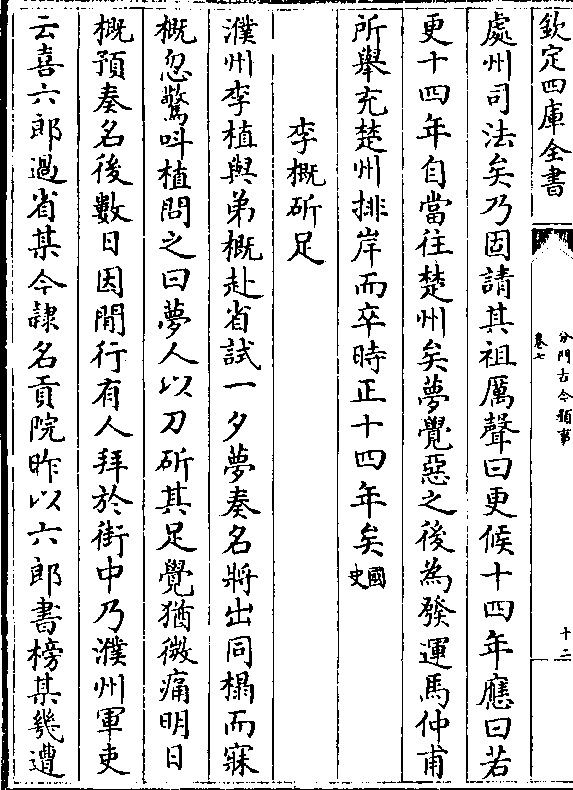 欽定四庫全書
分門古今類事
卷七
十二
處州司法矣乃固請其祖厲聲曰更候十四年應曰若
更十四年自當往楚州矣夢覺惡之後為發運馬仲甫
所舉充楚州排岸而卒時正十四年矣國史
李概斫足
濮州李植與弟概赴省試一夕夢奏名將出同榻而寐
概忽驚呌植問之曰夢人以刀斫其足覺猶微痛明日
概預奏名後數日因閒行有人拜於街中乃濮州軍吏
云喜六郎過省某今隷名貢院昨以六郎書榜某幾遭